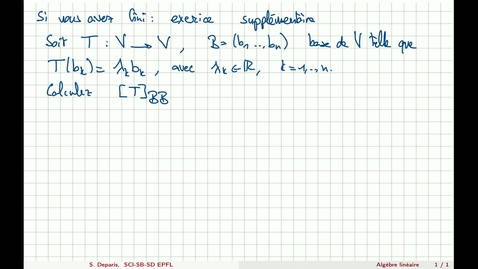 Si vous avez fini : exerice supplémentaire
Soit T : V → V , B = (b₁ ..., bₙ) base de V telle que
T(bₖ) = λₖ bₖ , avec λₖ ∈ ℝ, k = 1, ..., n.
Calculez [T]_BB
S. Deparis, SCI-SB-SD EPFL Algèbre linéaire 1 / 1